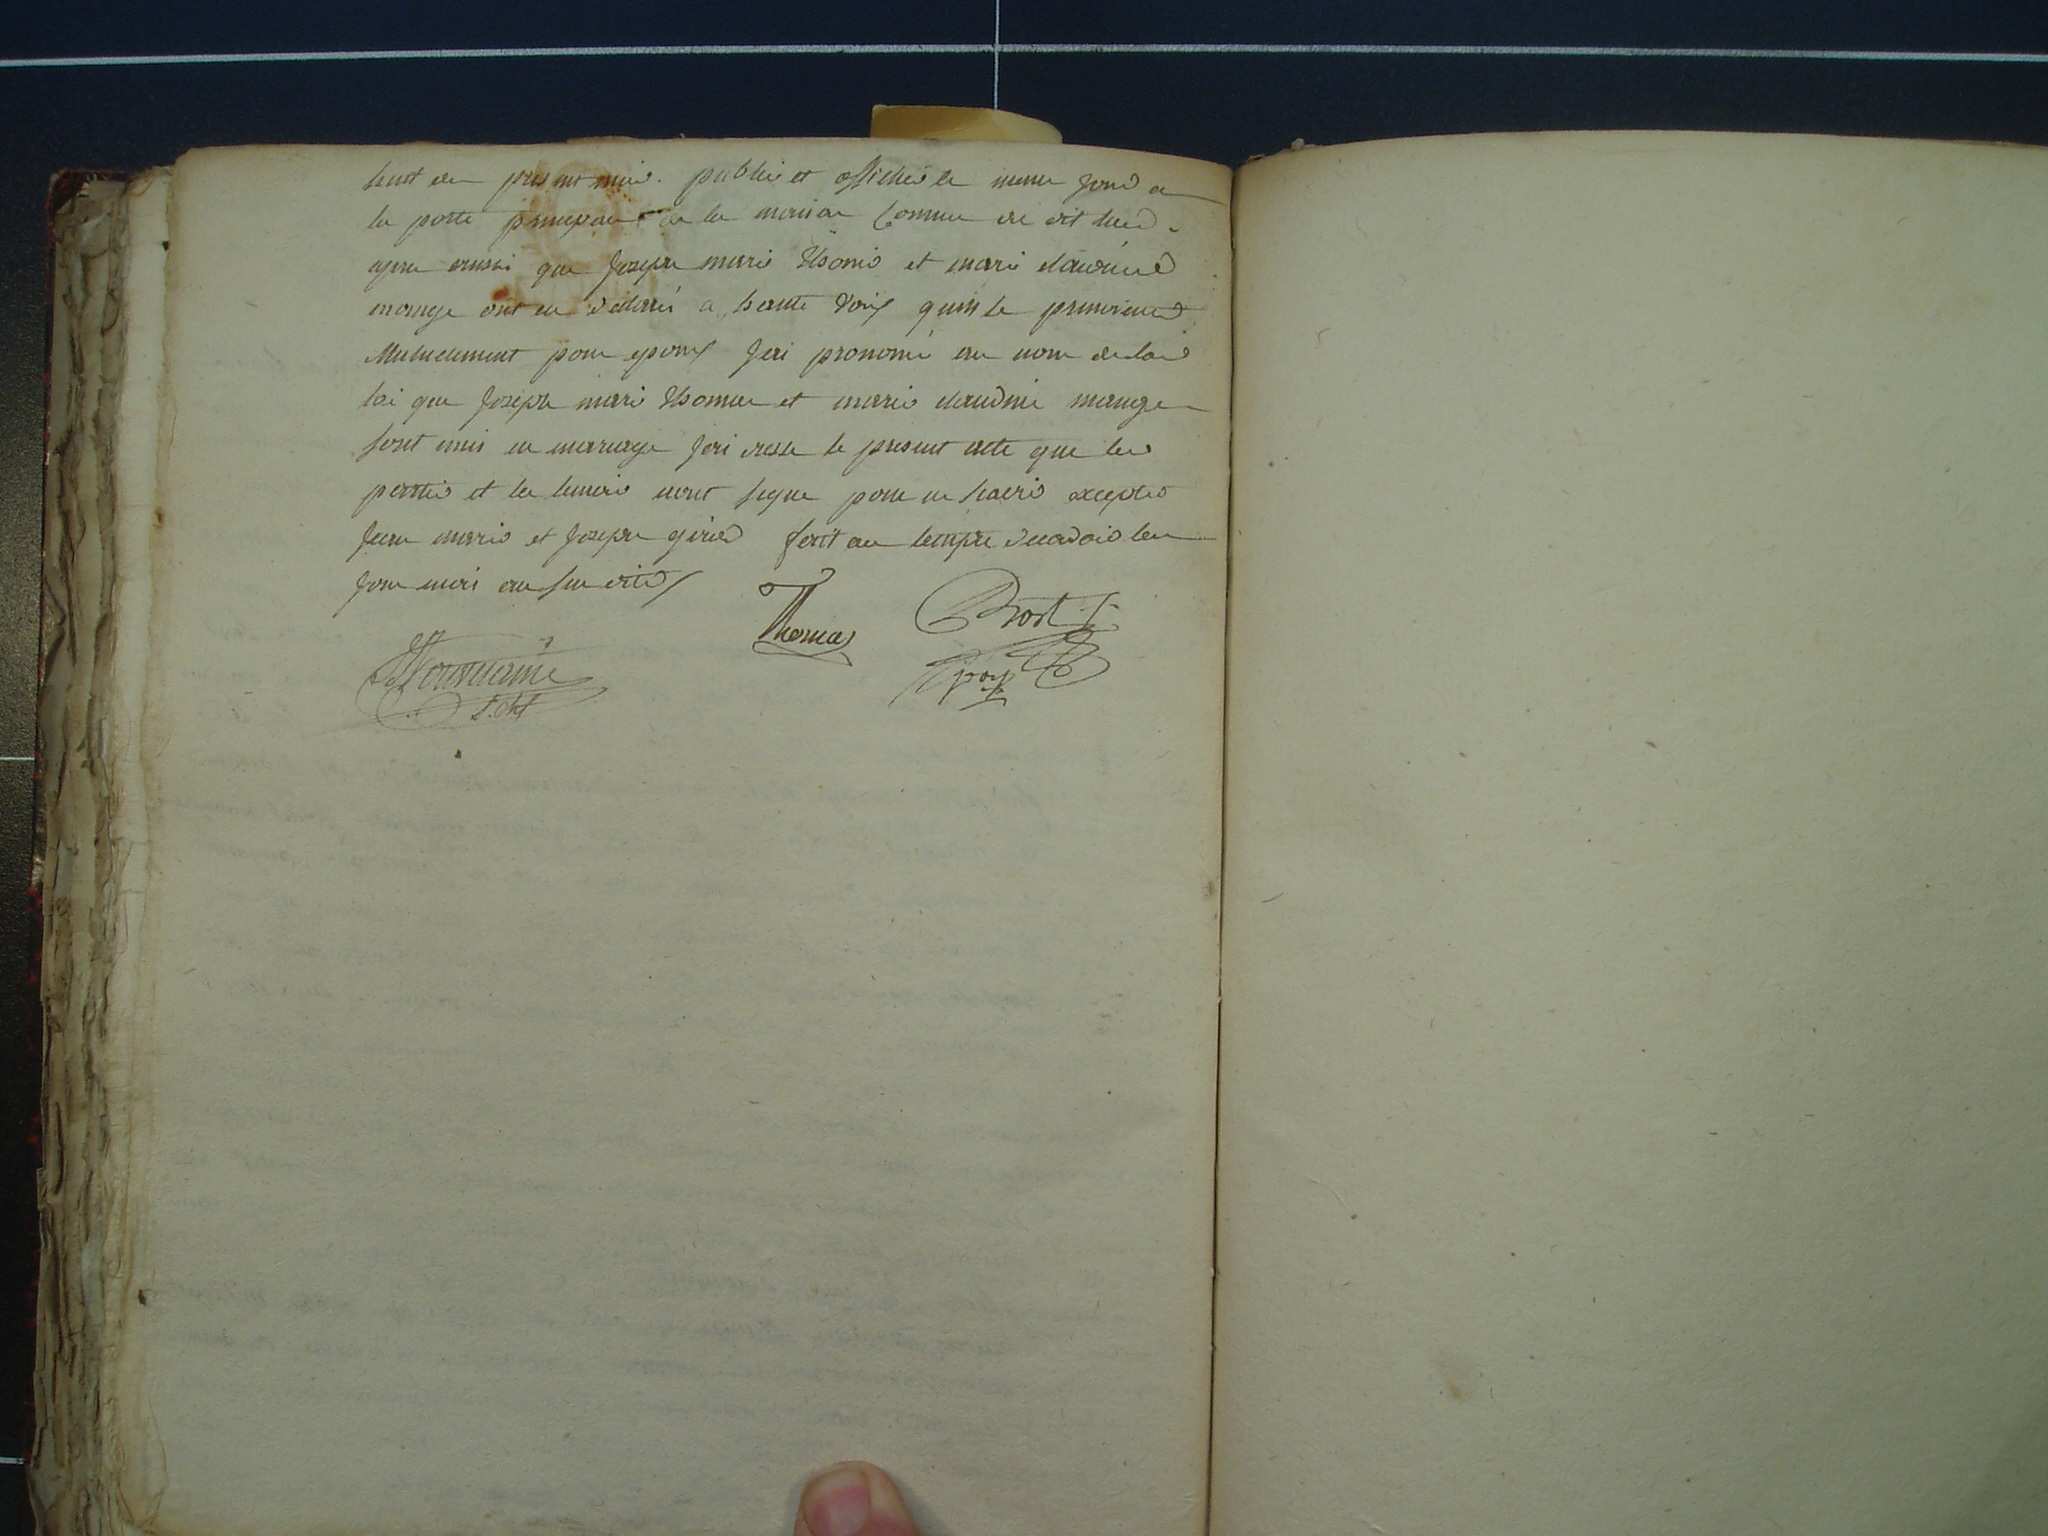 huit du present mois. publié et affiché le meme jour a
la porte principau de la maison Comune du dit lieu
apres aussi que Joseph marie Thomas et marie claudine
mange ont eu declaré a haute voix quils le prenoient
Mutuelement pour epoux Jai prononcé au nom de la
loi que Joseph marie Thomas et marie claudine mange
sont unis en mariage Jai dressé le present acte que les
parties et les temoins ont signe pour en excepté
Jean marie et Joseph fait au temple decadaire les
Jour mois an sus dits
Thomas
Brost